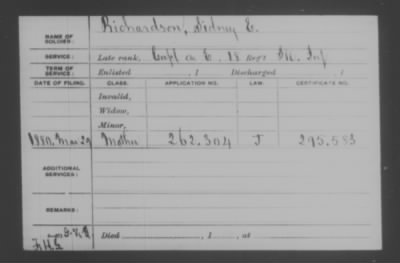 Richardson, Sidney E.
NAME OF SOLDIER:
SERVICE: Late rank, Capt Co. E, 18 Reg't Inf
TERM OF SERVICE: Enlisted , 1 Discharged , 1
DATE OF FILING. CLASS. APPLICATION NO. LAW. CERTIFICATE NO.
Invalid,
Widow,
Minor,
1880, Mar 29 Mother 262.304 J 295.583
ADDITIONAL SERVICES:
REMARKS:
Died , 1 , at